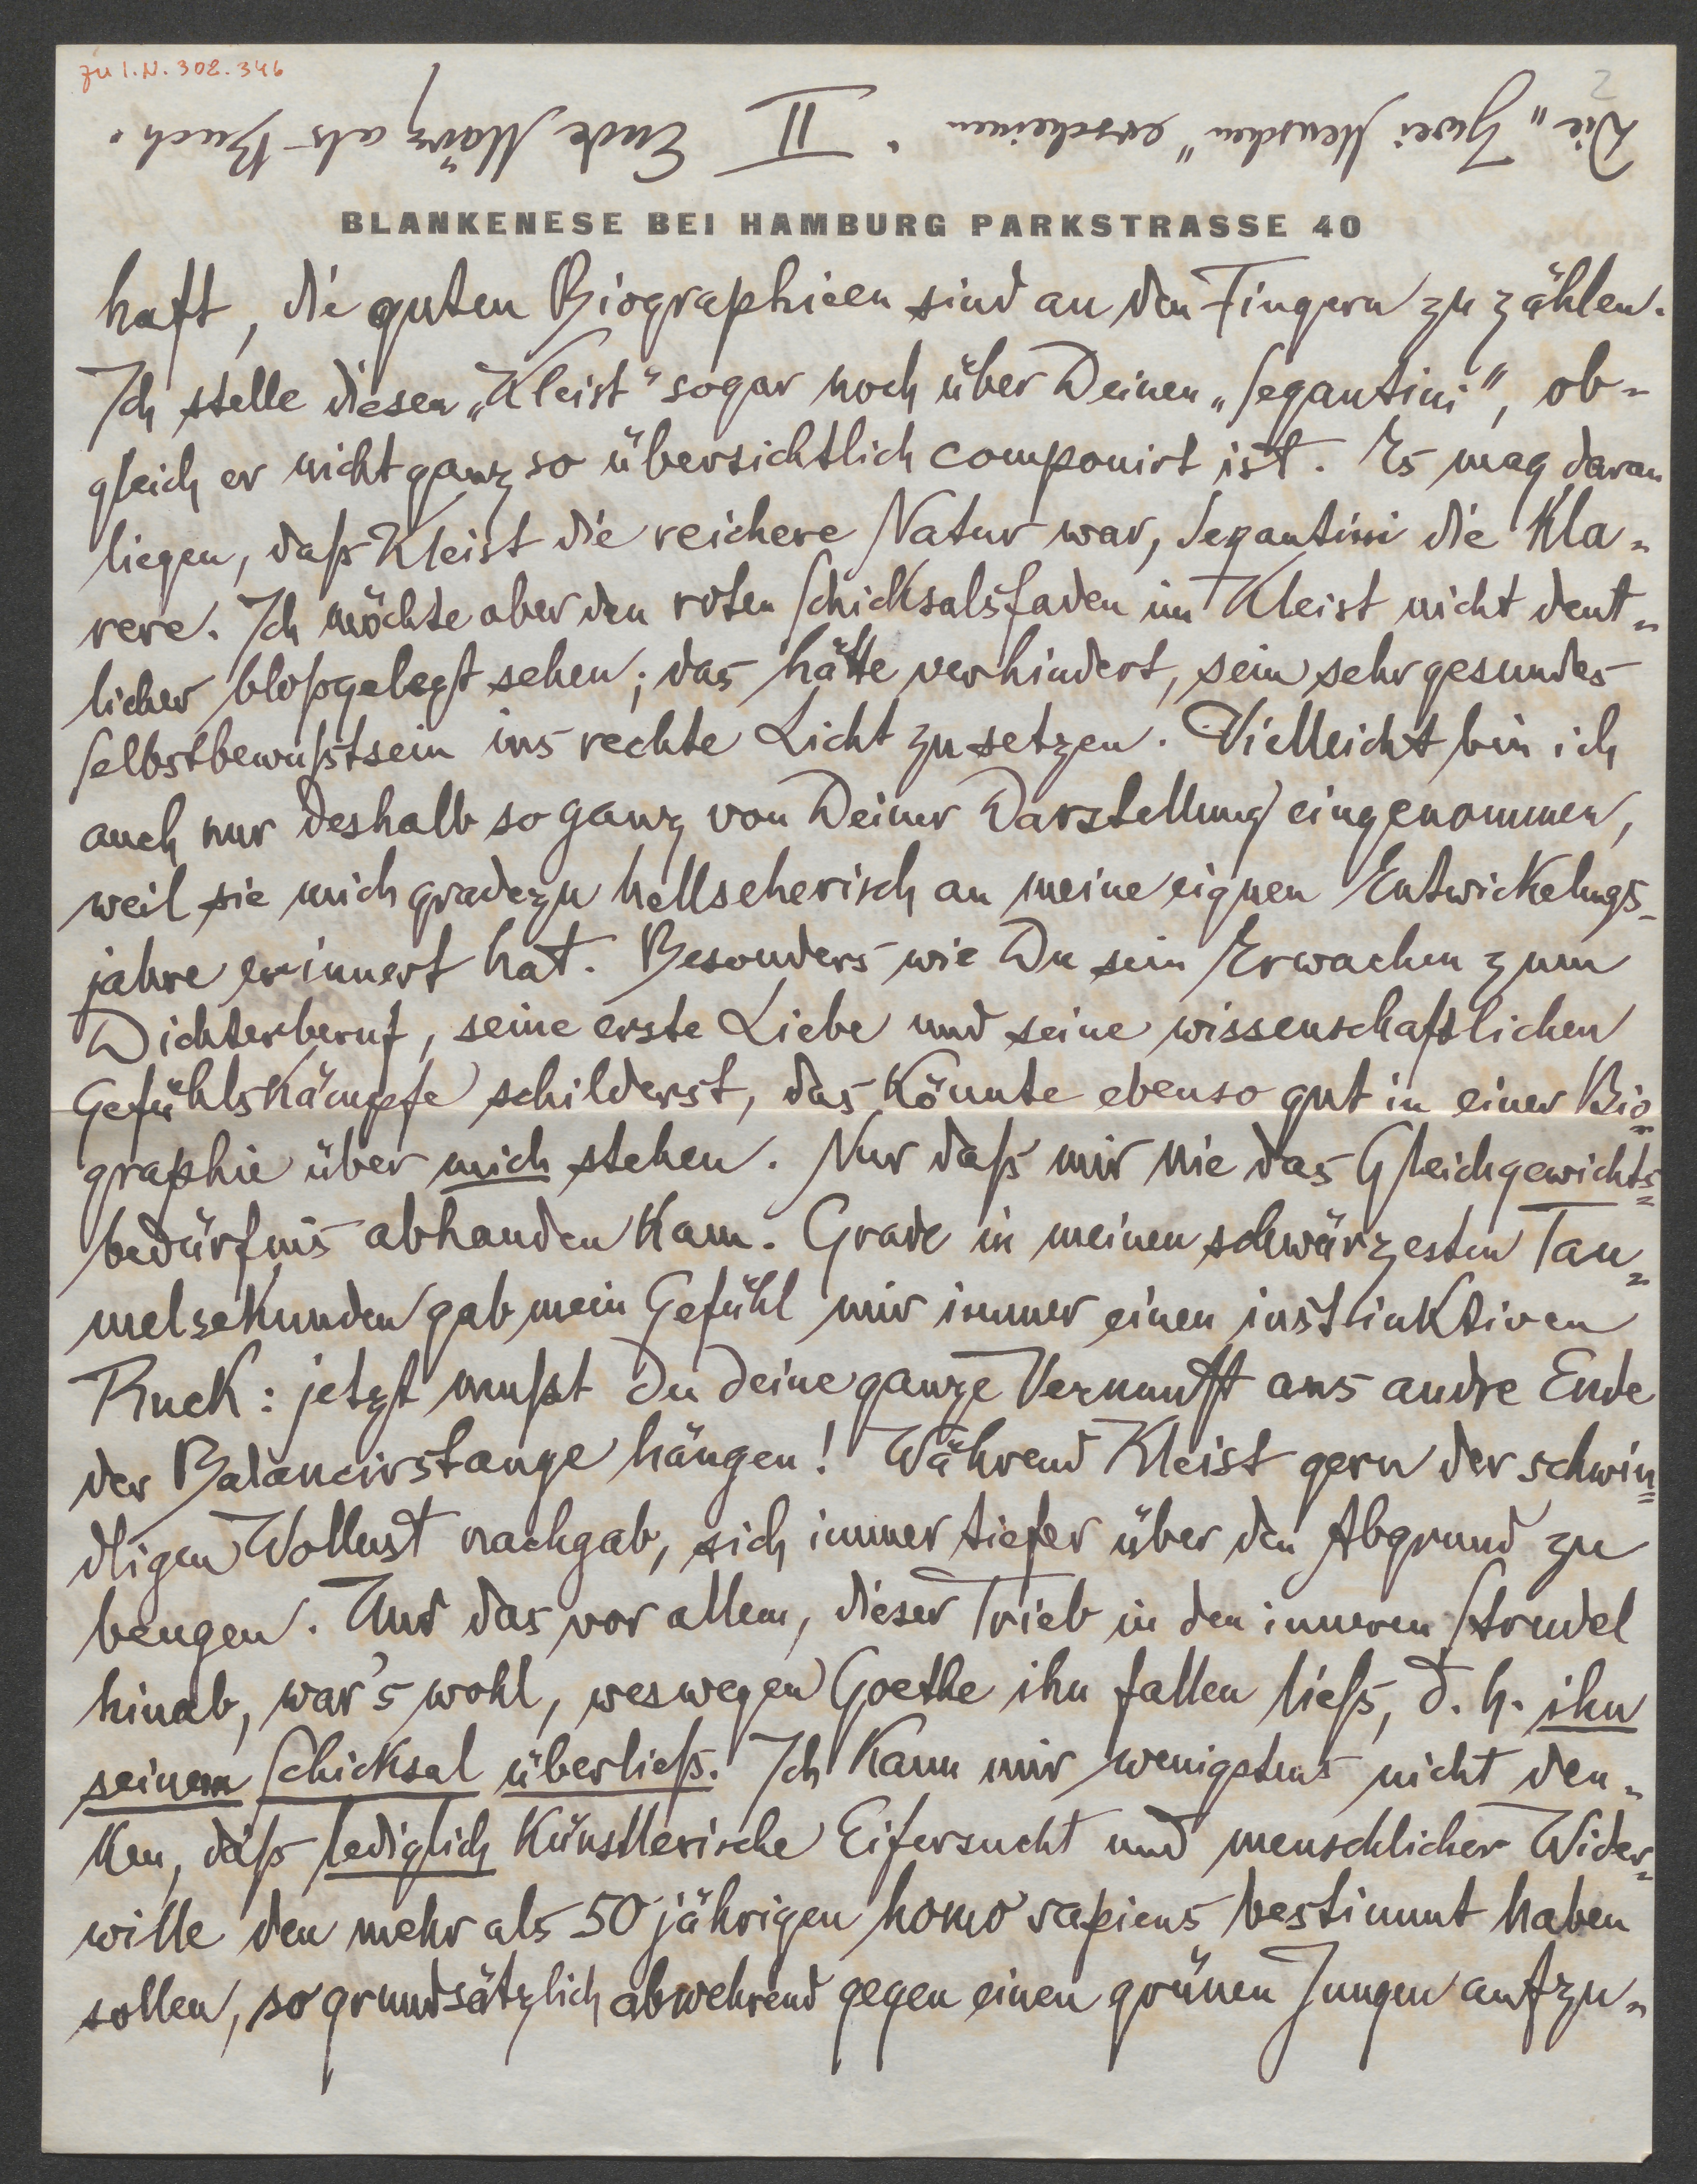 zu I.N. 302.346
2
Die „Zwei Menschen" erscheinen
Ende März als Buch.
II
BLANKENESE BEI HAMBURG PARKSTRASSE 40
haft, die guten Biographieen sind an den Fingern zu zählen.
Ich stelle diesen „Kleist" sogar noch über Deinen „Segantini", ob-
gleich er nicht ganz so übersichtlich componirt ist. Es mag daran
liegen, daß Kleist die reichere Natur war, Segantini die Kla-
rere. Ich möchte aber den roten Schicksalsfaden im Kleist nicht deut-
licher bloßgelegt sehen; das hätte verhindert, sein sehr gesundes
Selbstbewußtsein ins rechte Licht zu setzen. Vielleicht bin ich
auch nur deshalb so ganz von Deiner Darstellung eingenommen,
weil sie mich gradezu hellseherisch an meine eignen Entwickelungs-
jahre erinnert hat. Besonders wie Du sein Erwachen zum
Dichterberuf, seine erste Liebe und seine wissenschaftlichen
Gefühlskämpfe schilderst, das könnte ebenso gut in einer Bio-
graphie über mich stehen. Nur daß mir nie das Gleichgewichts-
bedürfnis abhanden kam. Grade in meinen schwärzesten Tau-
melsekunden gab mein Gefühl mir immer einen instinktiven
Ruck: jetzt mußt du deine ganze Vernunft ans andre Ende
der Balancirstange hängen! Während Kleist gern der schwin-
dligen Wollust nachgab, sich immer tiefer über den Abgrund zu
beugen. Und das vor allem, dieser Trieb in den inneren Strudel
hinab, war's wohl, weswegen Goethe ihn fallen ließ, d. h. ihn
seinem Schicksal überließ. Ich kann mir wenigstens nicht den-
ken, daß lediglich künstlerische Eifersucht und menschlicher Wider-
wille den mehr als 50jährigen homo sapiens bestimmt haben
sollen, so grundsätzlich abwehrend gegen einen grünen Jungen aufzu-